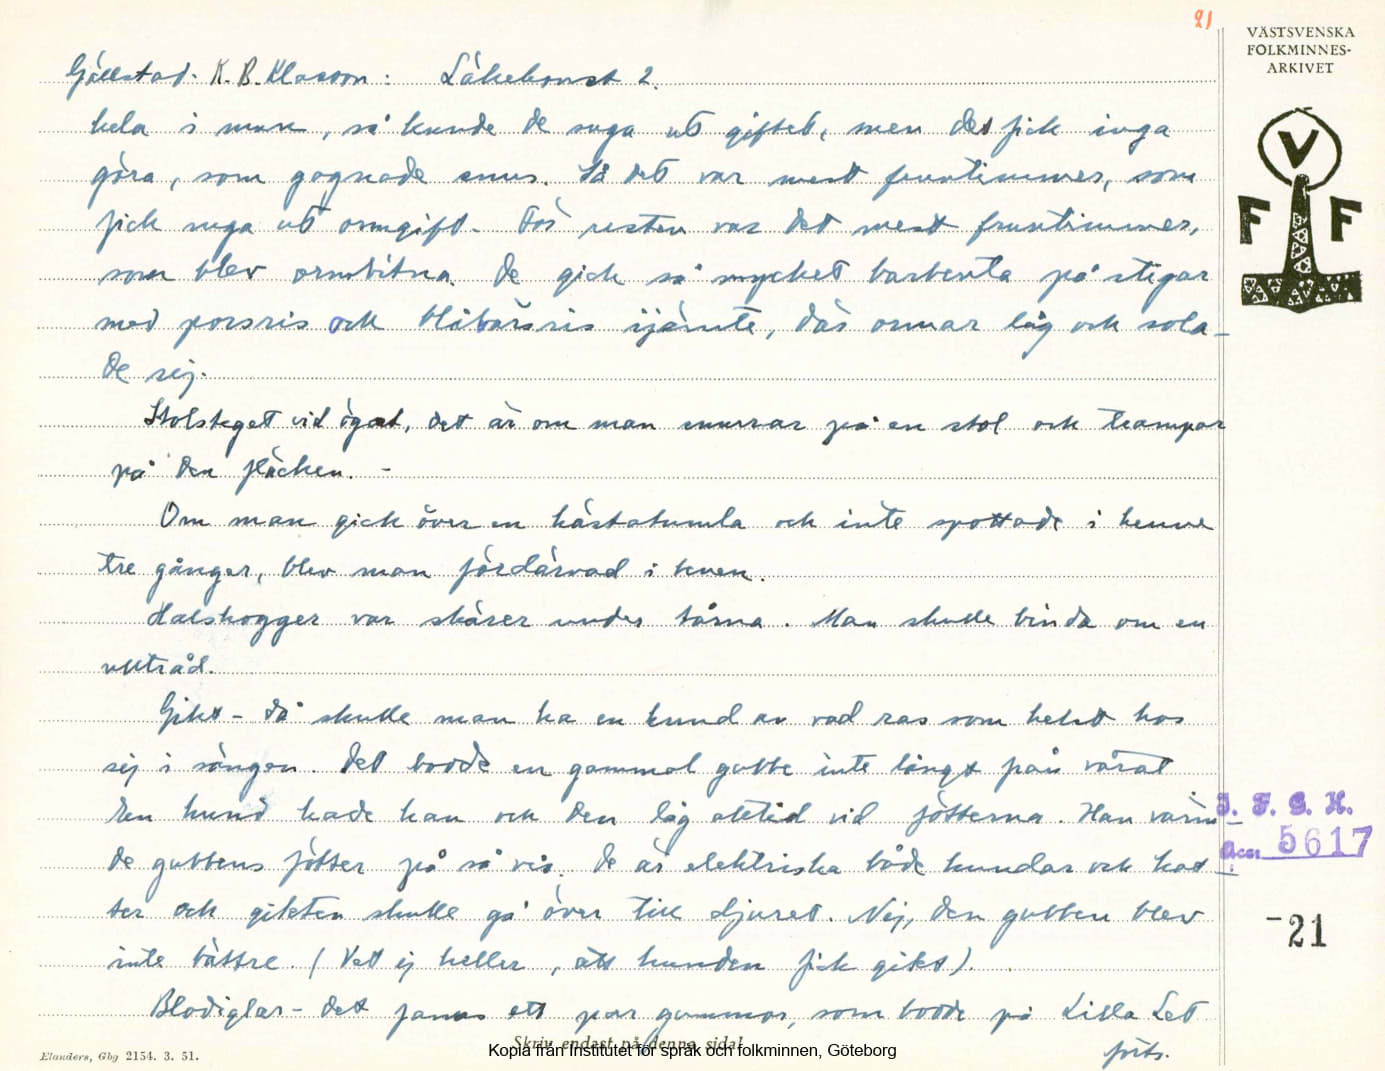 21
VÄSTSVENSKA
FOLKMINNES-
ARKIVET
V
F F
Gällstad. K. B. Klasson: Läkekonst 2.
hela i mun, så kunde de suga ut giftet, men det fick inga
göra, som gagnade snus. Så det var mest fruntimmer, som
fick suga ut ormgift. För resten var det mest fruntimmer,
som blev ormbitna. De gick så mycket barbenta på stigar
med porsris och blåbärsris ijämte, där ormar låg och sola-
de sig.
Stolsteget vid ögat, det är om man snurrar på en stol och trampar
på den fläcken. -
Om man gick över en hästatumla och inte spottade i henne
tre gånger, blev man fördärvad i
Halshogger var skärer under tårna. Man skulle binda om en
ulltråd.
Gikt - då skulle man ha en hund av vad ras som helst hos
sig i sängen. Det bodde en gammal gubbe inte långt från vårat
En hund hade han och den låg alltid vid fötterna. Han värm-
de gubbens fötter på så vis. De är elektriska både hundar och kat-
ter och gikten skulle gå över till djuret. Nej, den gubben blev
inte bättre. (Vet ej heller, att hunden fick gikt).
Blodiglar - det fanns ett par gummor, som bodde på Lilla Let
forts.
I. F. G. H.
Acc. 5617
-21
Elanders, Gbg 2154. 3. 51.
Skriv endast på denna sida!
Kopia från Institutet för språk och folkminnen, Göteborg